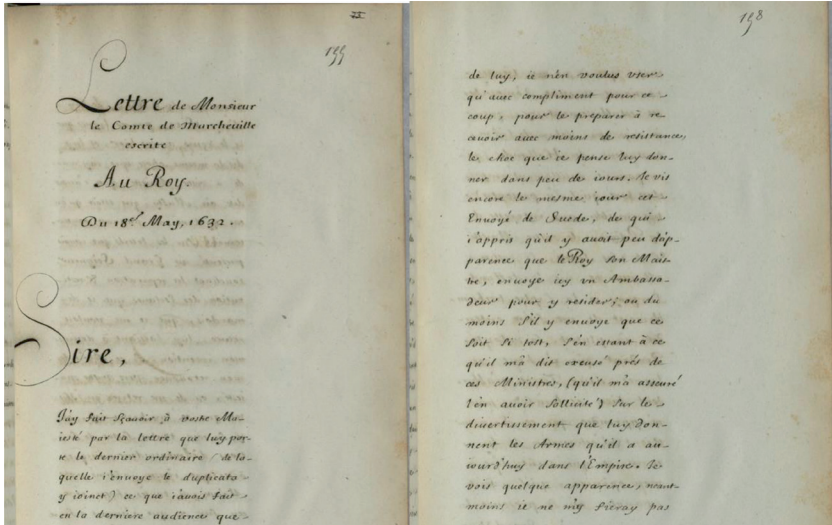 Lettre de Monsieur
le Comte de Marcheville
escrite
Au Roy.
Du 18.e May, 1632.
Sire,
J'ay fait sçavoir à vostre Ma-
iesté par la lettre que luy por-
te le dernier ordinaire (de la-
quelle i'envoye le duplicata
y ioinct) ce que i'avois fait
en la derniere audience que
198
de luy, ie n'en voulus vser
qu'avec compliment pour ce
coup, pour le preparer à re-
cevoir avec moins de resistance,
le choc que ie pense luy don-
ner dans peu de iours. Je vis
encore le mesme iour cet
Envoyé de Suede, de qui
i'appris qu'il y avoit peu d'ap-
parence que le Roy son Mais-
tre, envoye icy vn Ambassa-
deur pour y resider; ou du
moins s'il y envoye que ce
soit si tost, s'en estant à ce
qu'il m'a dit excusé prés de
ces Ministres, (qu'il m'a asseuré
l'en avoir sollicité) sur le
divertissement que luy don-
nent les Armes qu'il a au-
iourd'huy dans l'Empire. Je
vois quelque apparence, neant-
moins ie ne m'y fieray pas